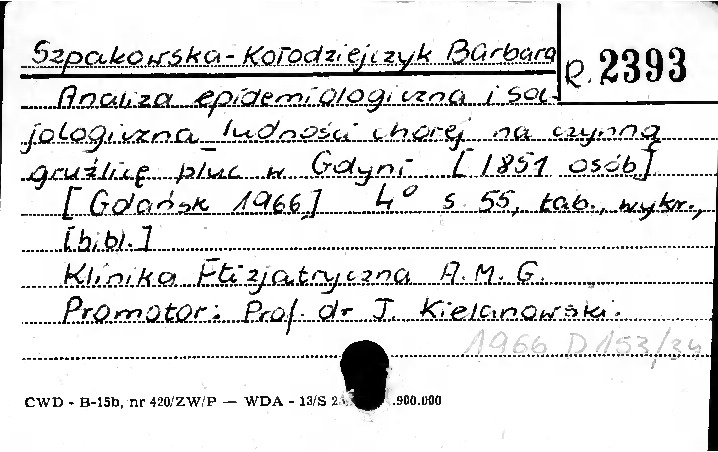 Szpakowska-Kołodziejczyk Barbara
R. 2393
Analiza epidemiologiczna i soc-
jologiczna ludności chorej na czynną
gruźlicę płuc w Gdyni [1851 osób]
[Gdańsk 1966] 4° s 55, tab., wykr.,
[bibl.]
Klinika Ftizjatryczna A.M.G.
Promotor: Prof. dr J. Kielanowski.
1966 D 153/34
CWD - B-15b, nr 420/ZW/P — WDA - 13/S .900.000